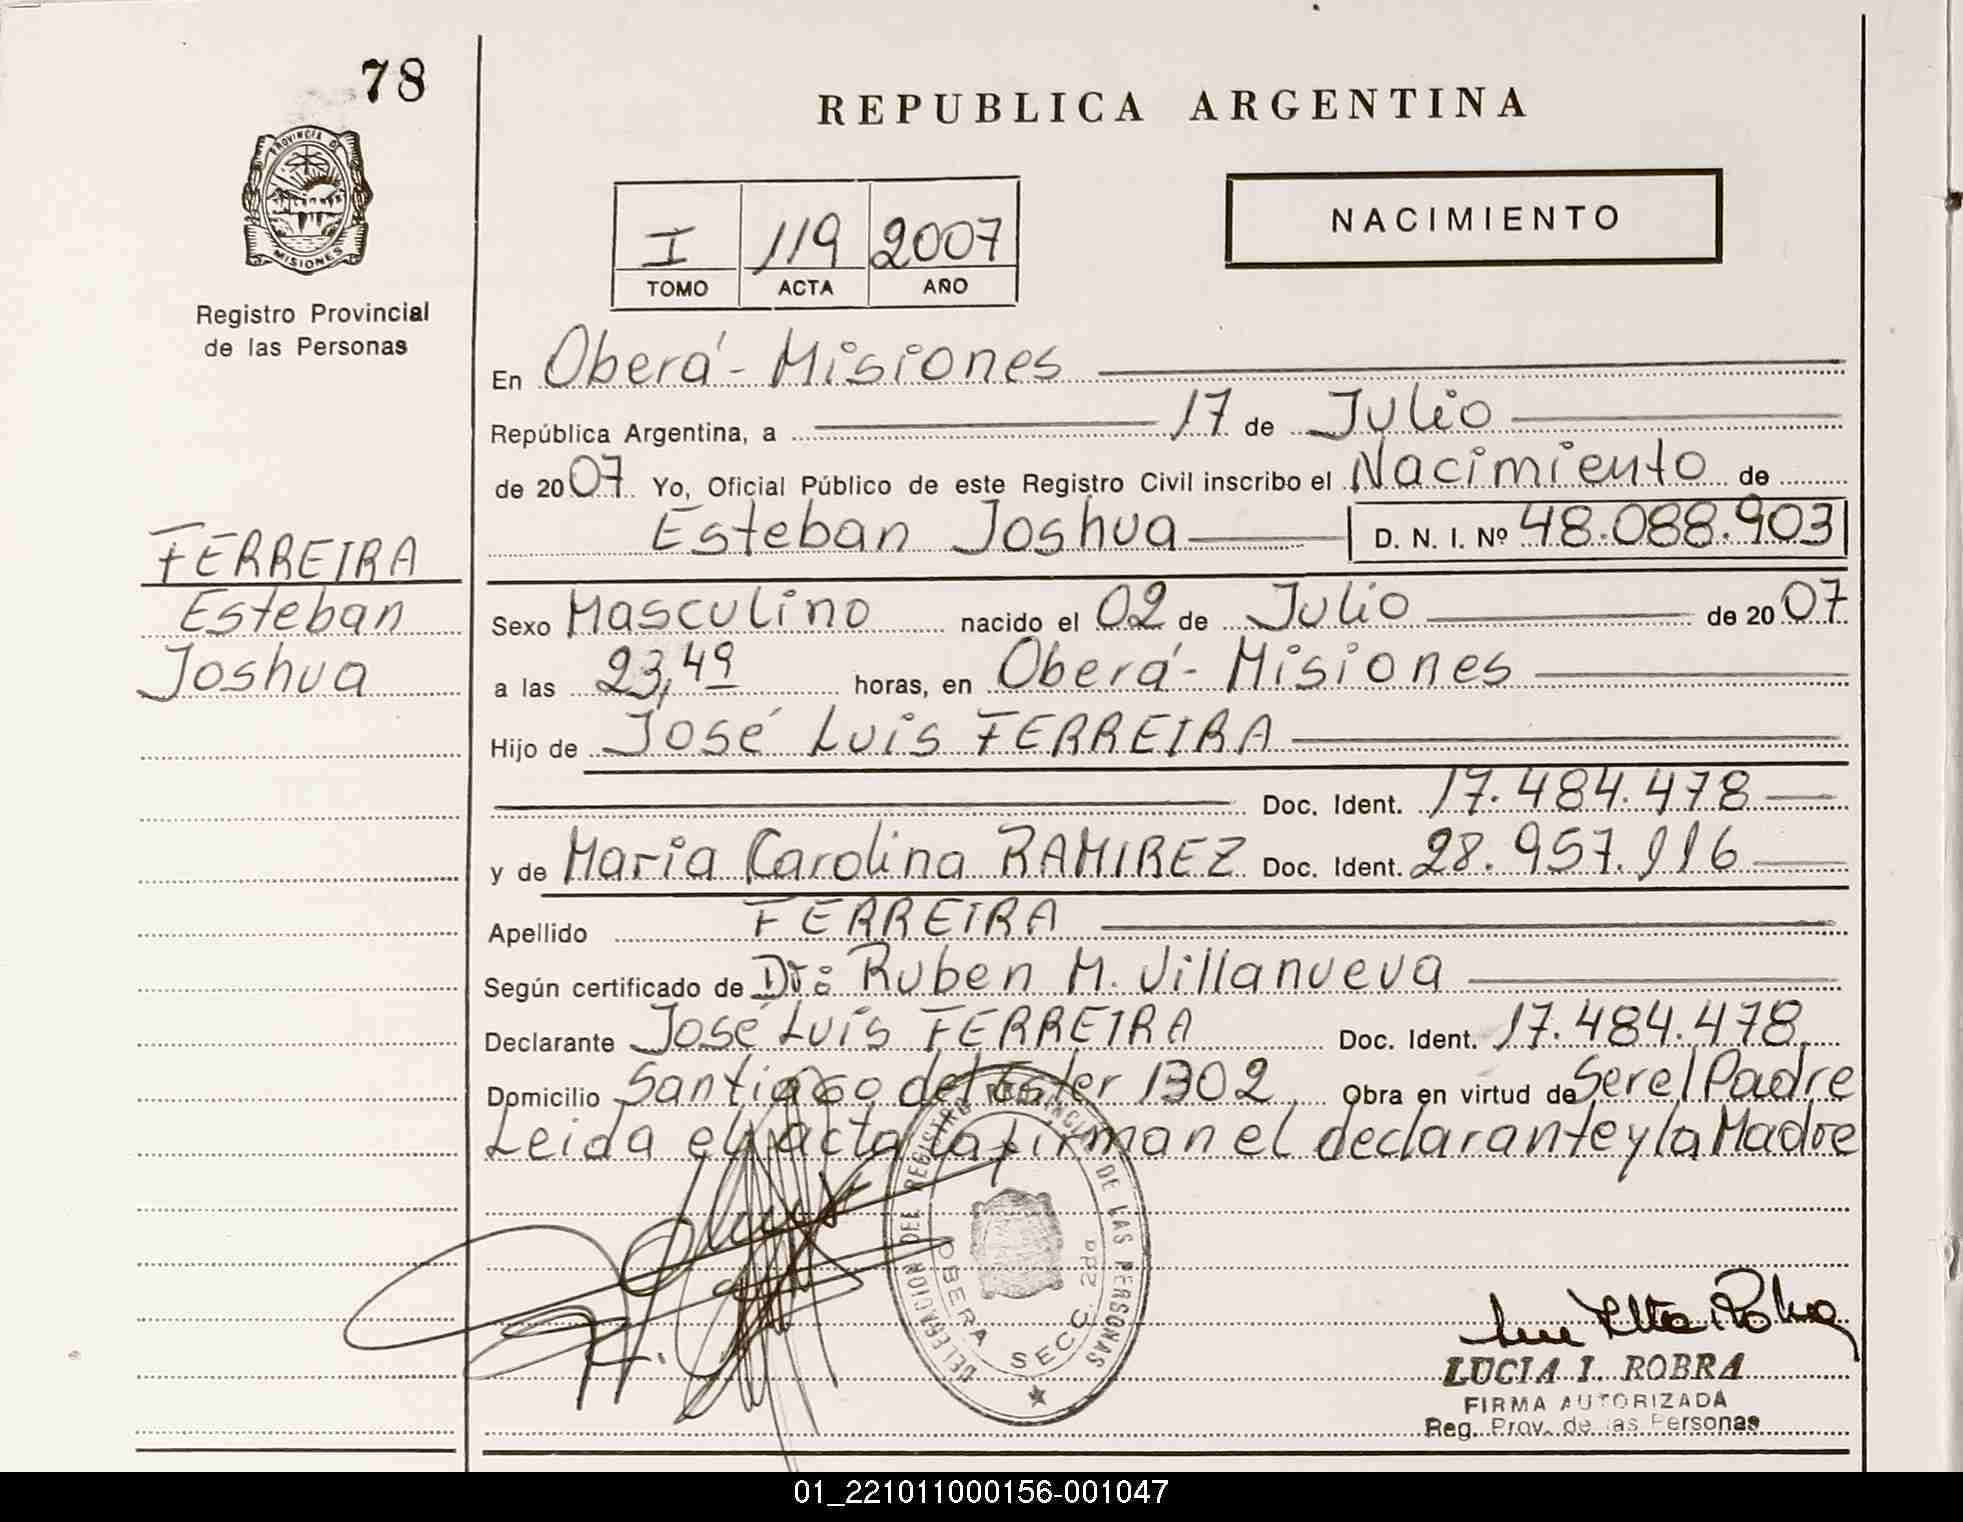 78
REPUBLICA ARGENTINA
PROVINCIA DE
MISIONES
Registro Provincial
de las Personas
I 119 2007
TOMO ACTA AÑO
NACIMIENTO
En Oberá - Misiones
República Argentina, a 17 de Julio
de 2007 Yo, Oficial Público de este Registro Civil inscribo el Nacimiento de
Esteban Joshua D. N. I. Nº 48.088.903
FERREIRA
Esteban
Joshua
Sexo Masculino nacido el 02 de Julio de 2007
a las 23,49 horas, en Oberá - Misiones
Hijo de José Luis FERREIRA
Doc. Ident. 17.484.478
y de Maria Carolina RAMIREZ Doc. Ident. 28.957.116
Apellido FERREIRA
Según certificado de Dr: Ruben M. Villanueva
Declarante José Luis FERREIRA Doc. Ident. 17.484.478
Domicilio Santiago del Ester 1302 Obra en virtud de Ser el Padre
Leida el acta la firman el declarante y la Madre
DELEGACION DEL REGISTRO PROVINCIAL DE LAS PERSONAS
OBERA SECC. 2da
LUCIA I. ROBRA
FIRMA AUTORIZADA
Reg. Prov. de las Personas
01_221011000156-001047